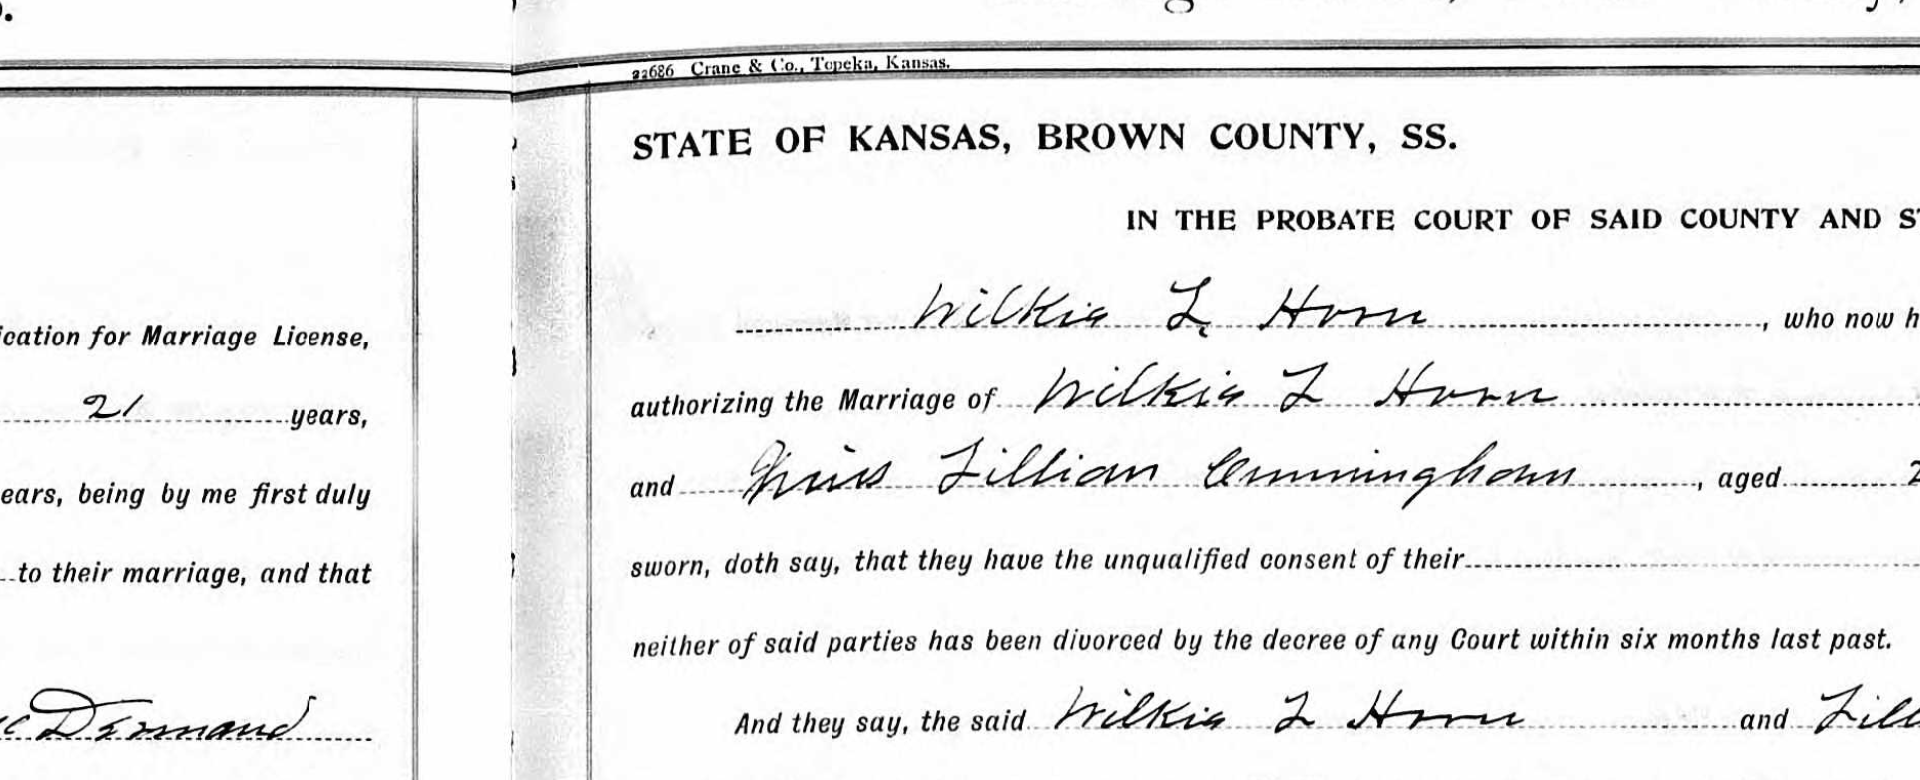 ication for Marriage License,
21 years,
ears, being by me first duly
to their marriage, and that
c Dermand
22686 Crane & Co., Topeka, Kansas.
STATE OF KANSAS, BROWN COUNTY, SS.
IN THE PROBATE COURT OF SAID COUNTY AND ST
Wilkie L. Horn, who now h
authorizing the Marriage of Wilkie L Horn
and Miss Lillian Cunningham, aged 2
sworn, doth say, that they have the unqualified consent of their
neither of said parties has been divorced by the decree of any Court within six months last past.
And they say, the said Wilkie L Horn and Lill